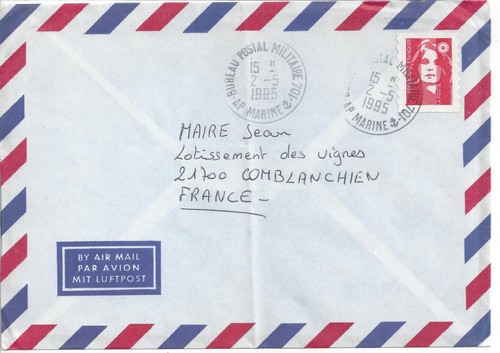 BUREAU POSTAL MILITAIRE 701
15 H
2 - 5
1995
AP. MARINE
POSTAL MILITAIRE 701
15 H
2 - 5
1995
AP. MARINE
MAIRE Jean
Lotissement des vignes
21700 COMBLANCHIEN
FRANCE -
BY AIR MAIL
PAR AVION
MIT LUFTPOST